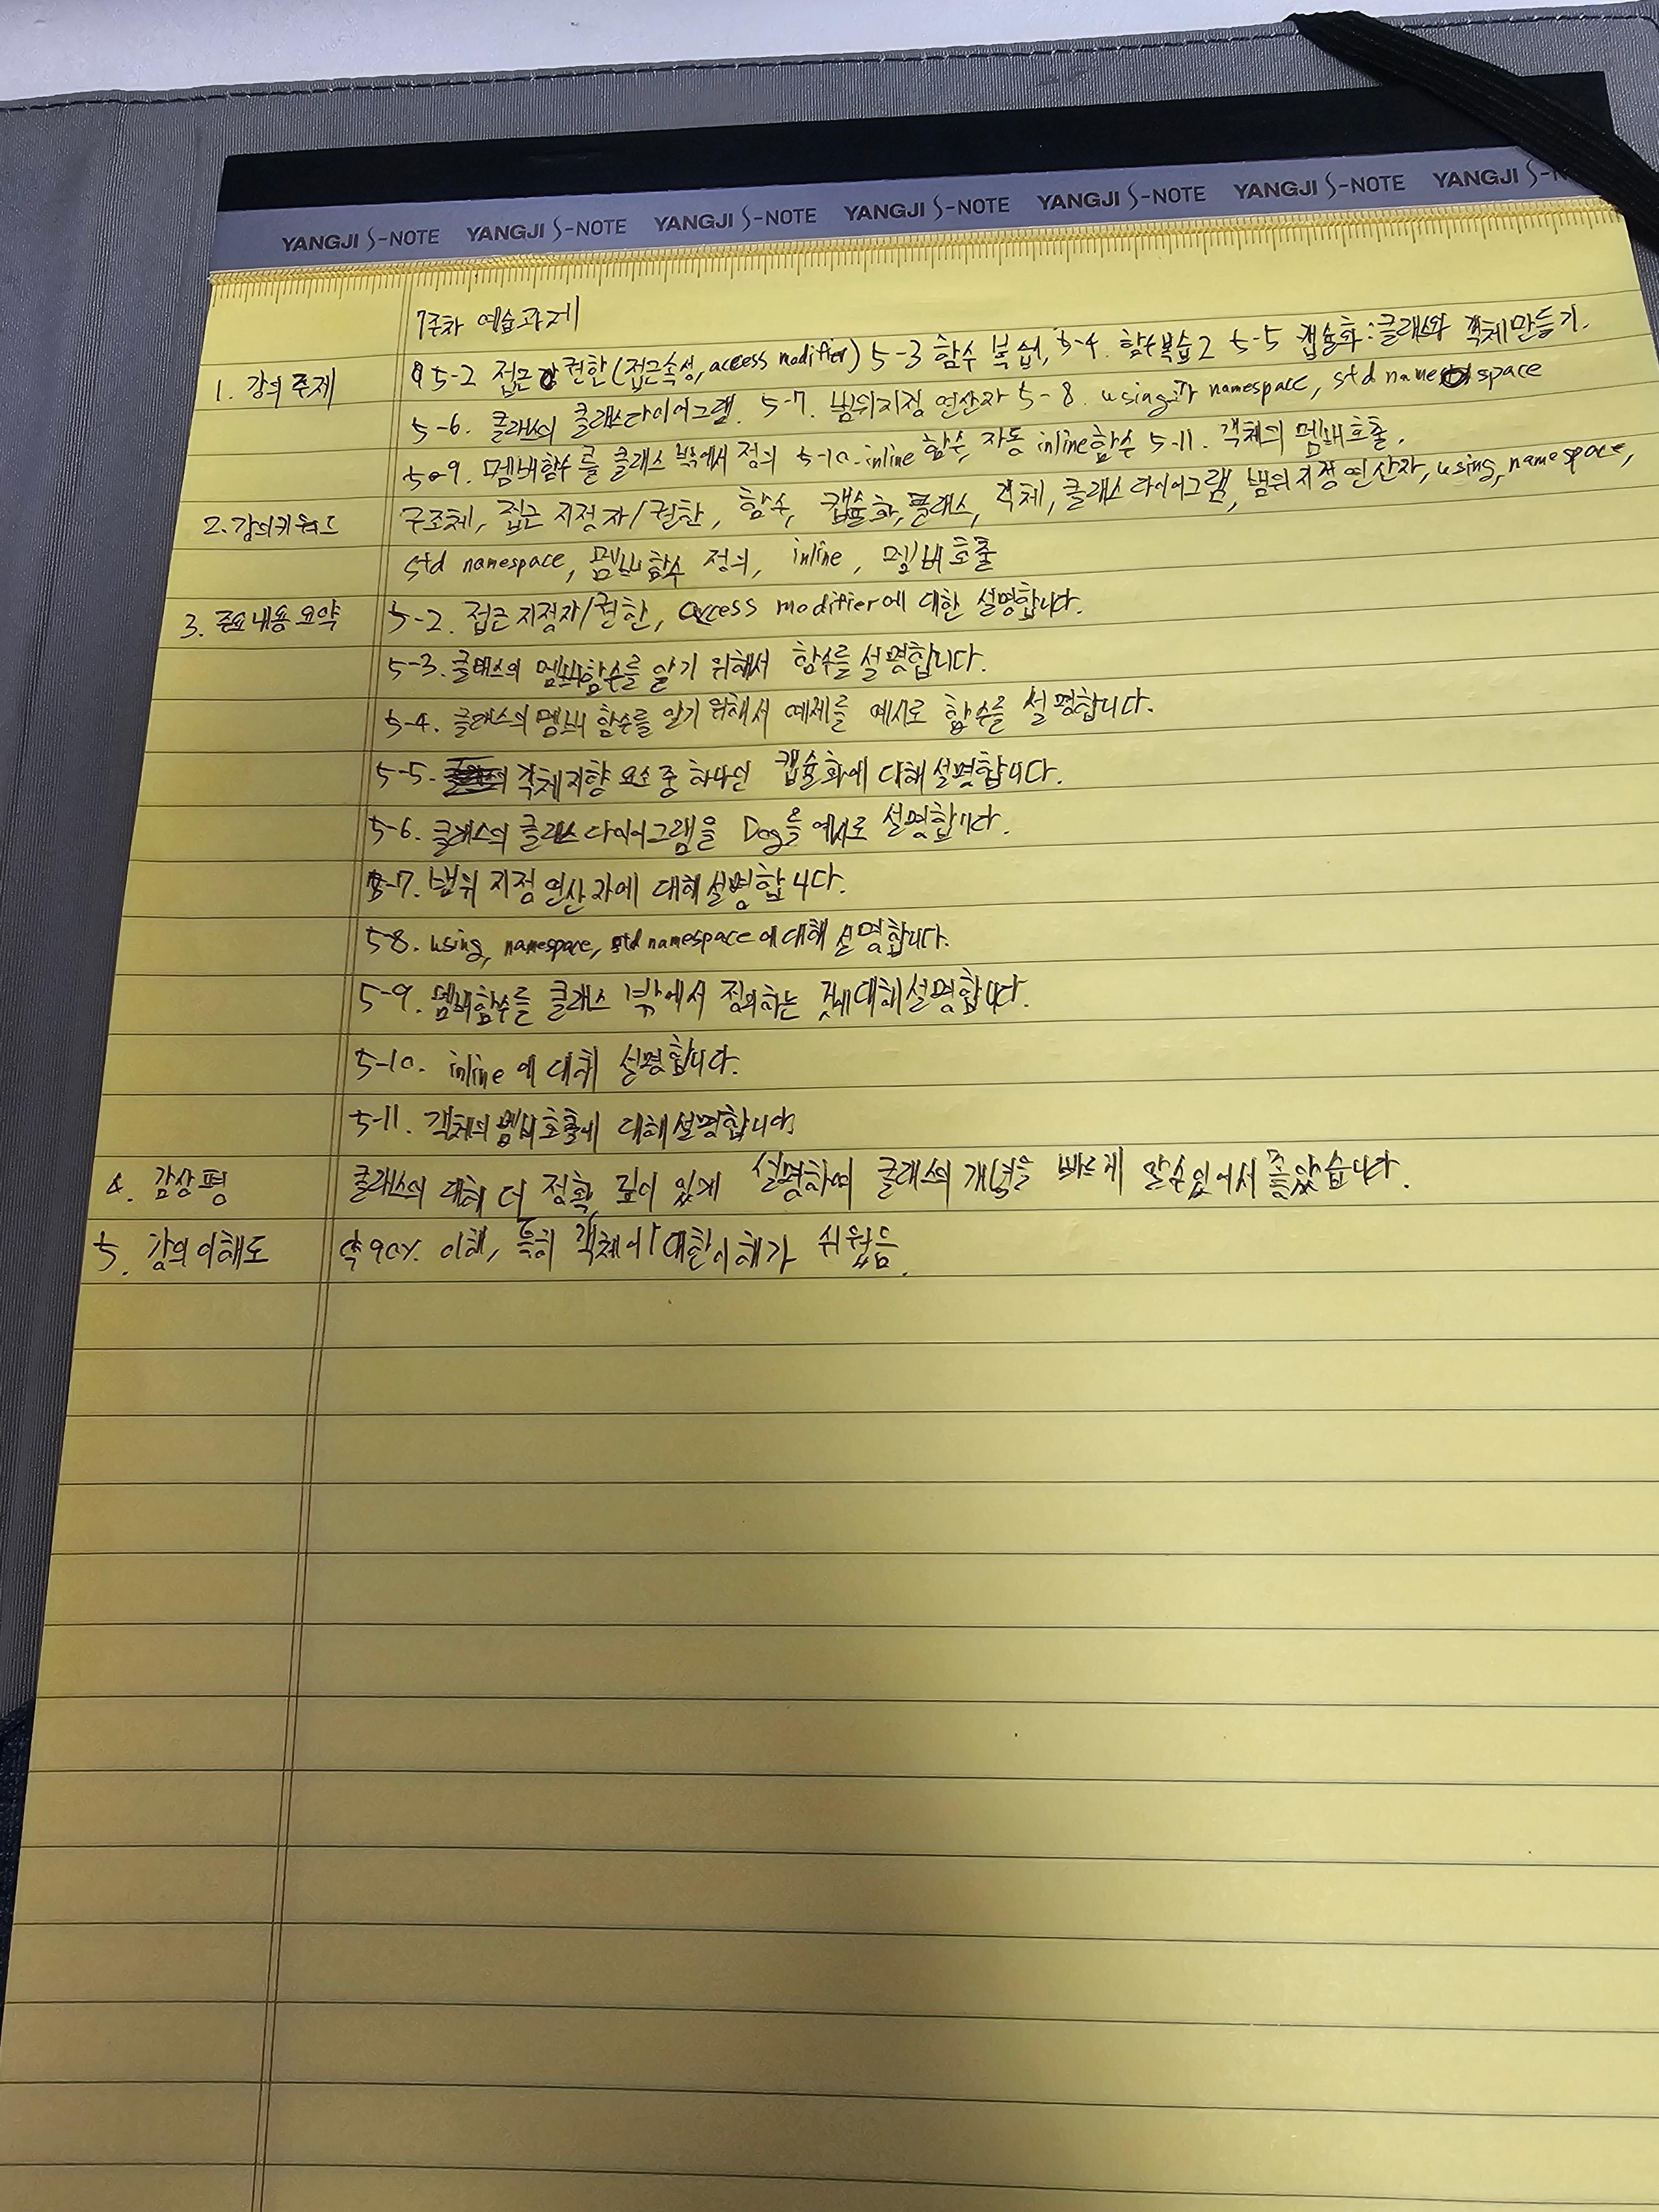 YANGJI S-NOTE YANGJI S-NOTE YANGJI S-NOTE YANGJI S-NOTE YANGJI S-NOTE YANGJI S-NOTE YANGJI S-N
7주차 예습과제
1. 강의 주제 5-2 접근 권한(접근속성, access modifier) 5-3 함수 복습, 5-4. 함수복습2 5-5 캡슐화:클래스와 객체만들기.
5-6. 클래스의 클래스다이어그램. 5-7. 범위지정 연산자 5-8. using namespace, std namespace
5-9. 멤버함수를 클래스 밖에서 정의 5-10. inline 함수, 자동 inline 함수 5-11. 객체의 멤버호출.
2. 강의키워드 구조체, 접근 지정자/권한, 함수, 캡슐화, 클래스, 객체, 클래스다이어그램, 범위지정연산자, using, namespace,
std namespace, 멤버함수 정의, inline, 멤버호출
3. 주요내용요약 5-2. 접근지정자/권한, access modifier에 대한 설명합니다.
5-3. 클래스의 멤버함수를 알기 위해서 함수를 설명합니다.
5-4. 클래스의 멤버 함수를 알기 위해서 예제를 예시로 함수를 설명합니다.
5-5. 객체지향 요소 중 하나인 캡슐화에 대해 설명합니다.
5-6. 클래스의 클래스 다이어그램을 Dog을 예시로 설명합니다.
5-7. 범위 지정 연산자에 대해설명합니다.
5-8. using, namespace, std namespace에 대해 설명합니다.
5-9. 멤버함수를 클래스 밖에서 정의하는 것에대해설명합니다.
5-10. inline에 대해 설명합니다.
5-11. 객체의 멤버호출에 대해설명합니다
4. 감상평 클래스의 대해 더 정확, 깊이 있게 설명하여 클래스의 개념을 빠르게 알수있어서 좋았습니다.
5. 강의이해도 약90% 이해, 특히 객체에 대한이해가 쉬웠음.